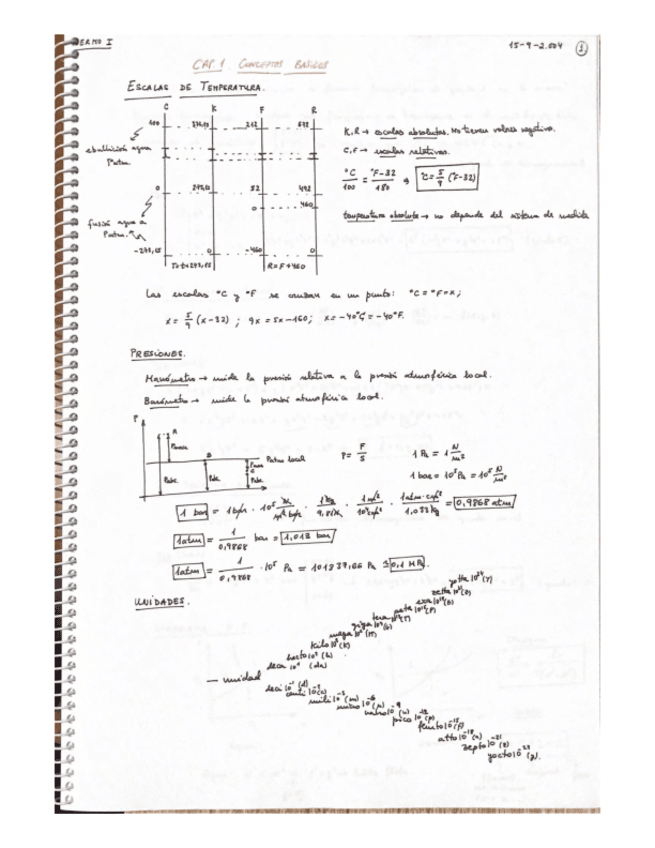 TERMO I
15-9-2.004 1
CAP. 1. CONCEPTOS BASICOS
ESCALAS DE TEMPERATURA.
C K F R
100 212 672
ebullición agua
Patm.
0 32 492
0 460
fusión agua a
Patm.
-273,15 0 -460 0
R=F+460
K,R → escalas absolutas. No tienen valores negativos.
C,F → escalas relativas.
°C/100 = °F-32/180 → °C = 5/9 (°F-32)
temperatura absoluta → no depende del sistema de medida
Las escalas °C y °F se cruzan en un punto: °C = °F = x;
x = 5/9 (x-32) ; 9x = 5x-160; x = -40°C = -40°F.
PRESIONES.
Manómetro → mide la presión relativa a la presión atmosférica local.
Barómetro → mide la presión atmosférica local.
P
A
Pman
B
Patm local
Pabs Pabs Pabs
P = F/S 1 Pa = 1 N/m²
1 bar = 10⁵ Pa = 10⁵ N/m²
1 bar = 1 bar · 10⁵ N/m² bar · 1 kg/9,81 N · 1 m²/10⁴ cm² · 1 atm·cm²/1,033 kg = 0,9868 atm
1 atm = 1/0,9868 bar = 1,013 bar
1 atm = 1/0,9868 · 10⁵ Pa = 101337,66 Pa ≅ 0,1 MPa.
UNIDADES.
yotta 10²⁴ (Y)
zetta 10²¹ (Z)
exa 10¹⁸ (E)
peta 10¹⁵ (P)
tera 10¹² (T)
giga 10⁹ (G)
mega 10⁶ (M)
kilo 10³ (k)
hecto 10² (h)
deca 10¹ (da)
— unidad
deci 10⁻¹ (d)
centi 10⁻² (c)
mili 10⁻³ (m)
micro 10⁻⁶ (μ)
nano 10⁻⁹ (n)
pico 10⁻¹² (p)
femto 10⁻¹⁵ (f)
atto 10⁻¹⁸ (a)
zepto 10⁻²¹ (z)
yocto 10⁻²⁴ (y).